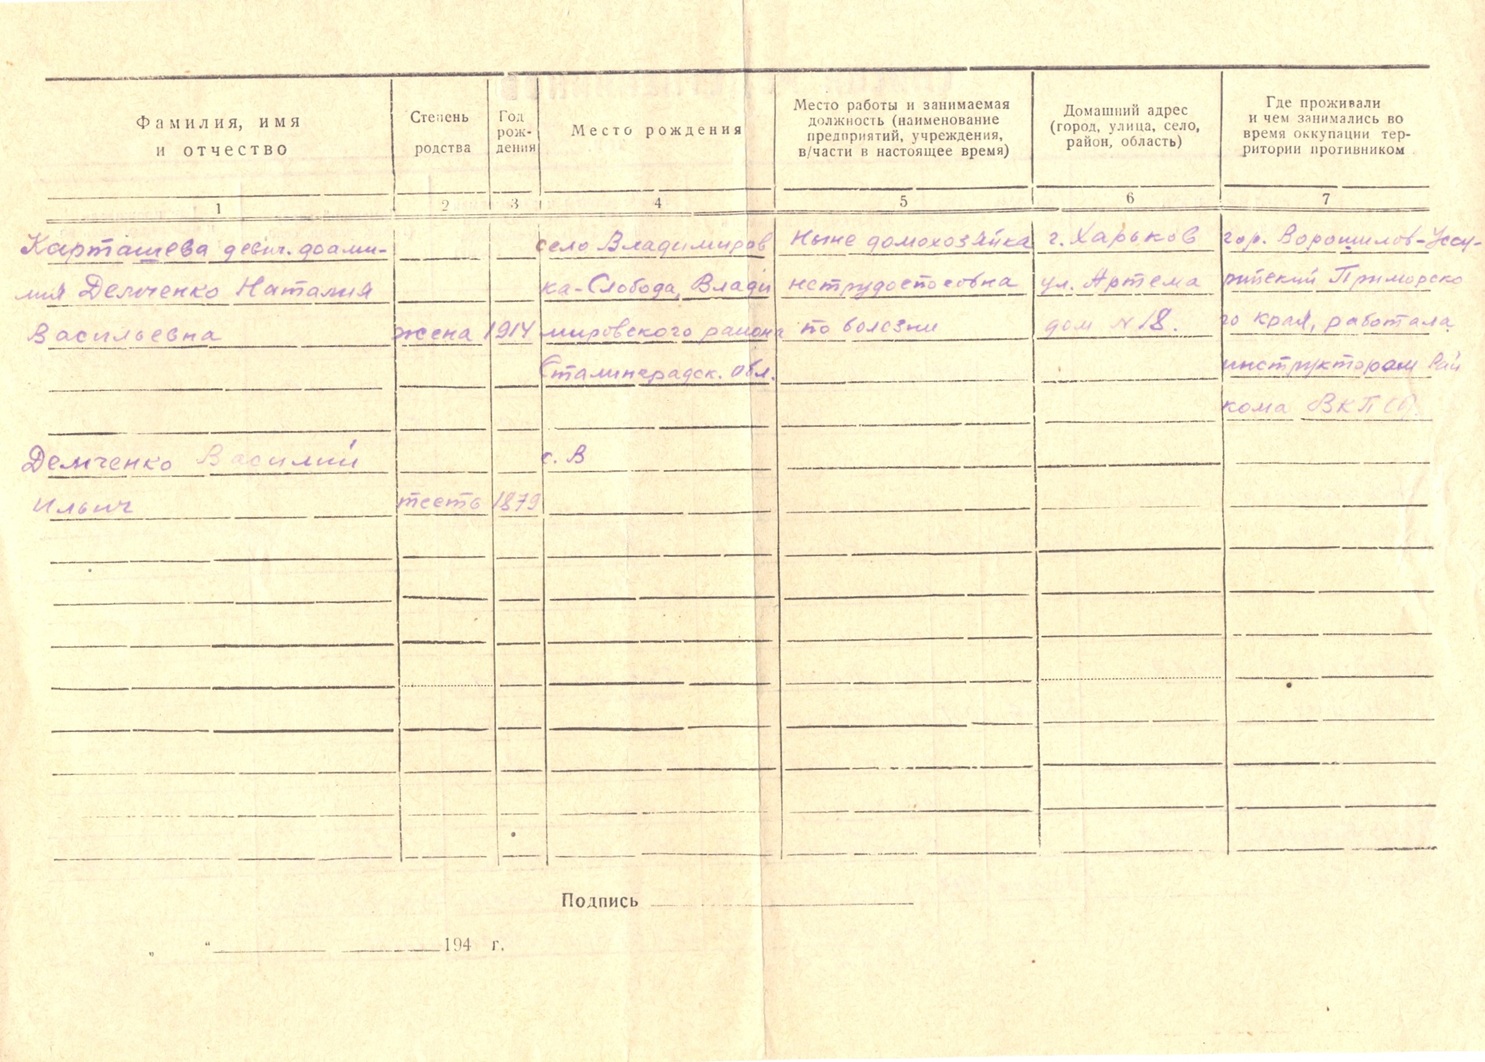 Фамилия, имя
и отчество
Степень
родства
Год
рож-
дения
Место рождения
Место работы и занимаемая
должность (наименование
предприятий, учреждения,
в/части в настоящее время)
Домашний адрес
(город, улица, село,
район, область)
Где проживали
и чем занимались во
время оккупации тер-
ритории противником
1 2 3 4 5 6 7
Карташева девич. фами-
лия Демченко Наталия
Васильевна
жена
1914
село Владимиров
ка-Слобода, Влади
мировского района
Сталинградск. обл.
Ныне домохозяйка
нетрудоспособна
по болезни
г. Харьков
ул. Артема
дом № 18.
гор. Ворошилов-Уссу-
рийский Приморско
го края, работала
инструктором Рай
кома ВКП(б).
Демченко Василий
Ильич
тесть
1879
с. В
Подпись
„ “ 194 г.